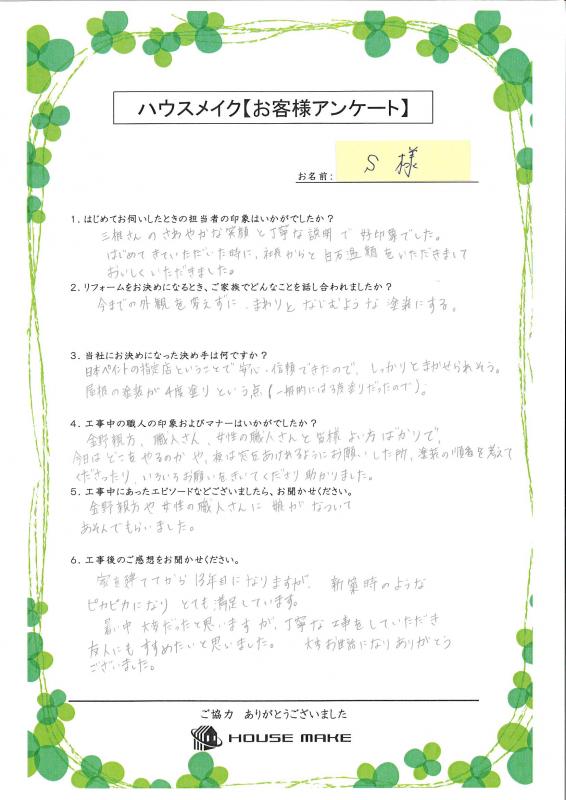 ハウスメイク【お客様アンケート】
お名前: S 様
1. はじめてお伺いしたときの担当者の印象はいかがでしたか？
三根さんのさわやかな笑顔と丁寧な説明で好印象でした。
はじめてきていただいた時に、社長からと白万温額をいただきまして
おいしくいただきました。
2. リフォームをお決めになるとき、ご家族でどんなことを話し合われましたか？
今までの外観を変えずに、まわりとなじむような塗装にする。
3. 当社にお決めになった決め手は何ですか？
日本ペイントの指定店ということで安心・信頼できたので、しっかりとまかせられそう。
屋根の塗装が4度塗りという点(一般的には3度塗りだったので)。
4. 工事中の職人の印象およびマナーはいかがでしたか？
金野親方、職人さん、女性の職人さんと皆様よい方ばかりで、
今日はどこをやるのかや、夜は窓をあけれるようにお願いした所、塗装の順番を考えて
くださったり、いろいろお願いをきいてくださり助かりました。
5. 工事中にあったエピソードなどございましたら、お聞かせください。
金野親方や女性の職人さんに娘がなついて
あそんでもらいました。
6. 工事後のご感想をお聞かせください。
家を建ててから13年目になりますが、新築時のような
ピカピカになりとても満足しています。
暑い中大変だったと思いますが、丁寧な工事をしていただき
友人にもすすめたいと思いました。 大変お世話になりありがとう
ございました。
ご協力 ありがとうございました
HOUSE MAKE